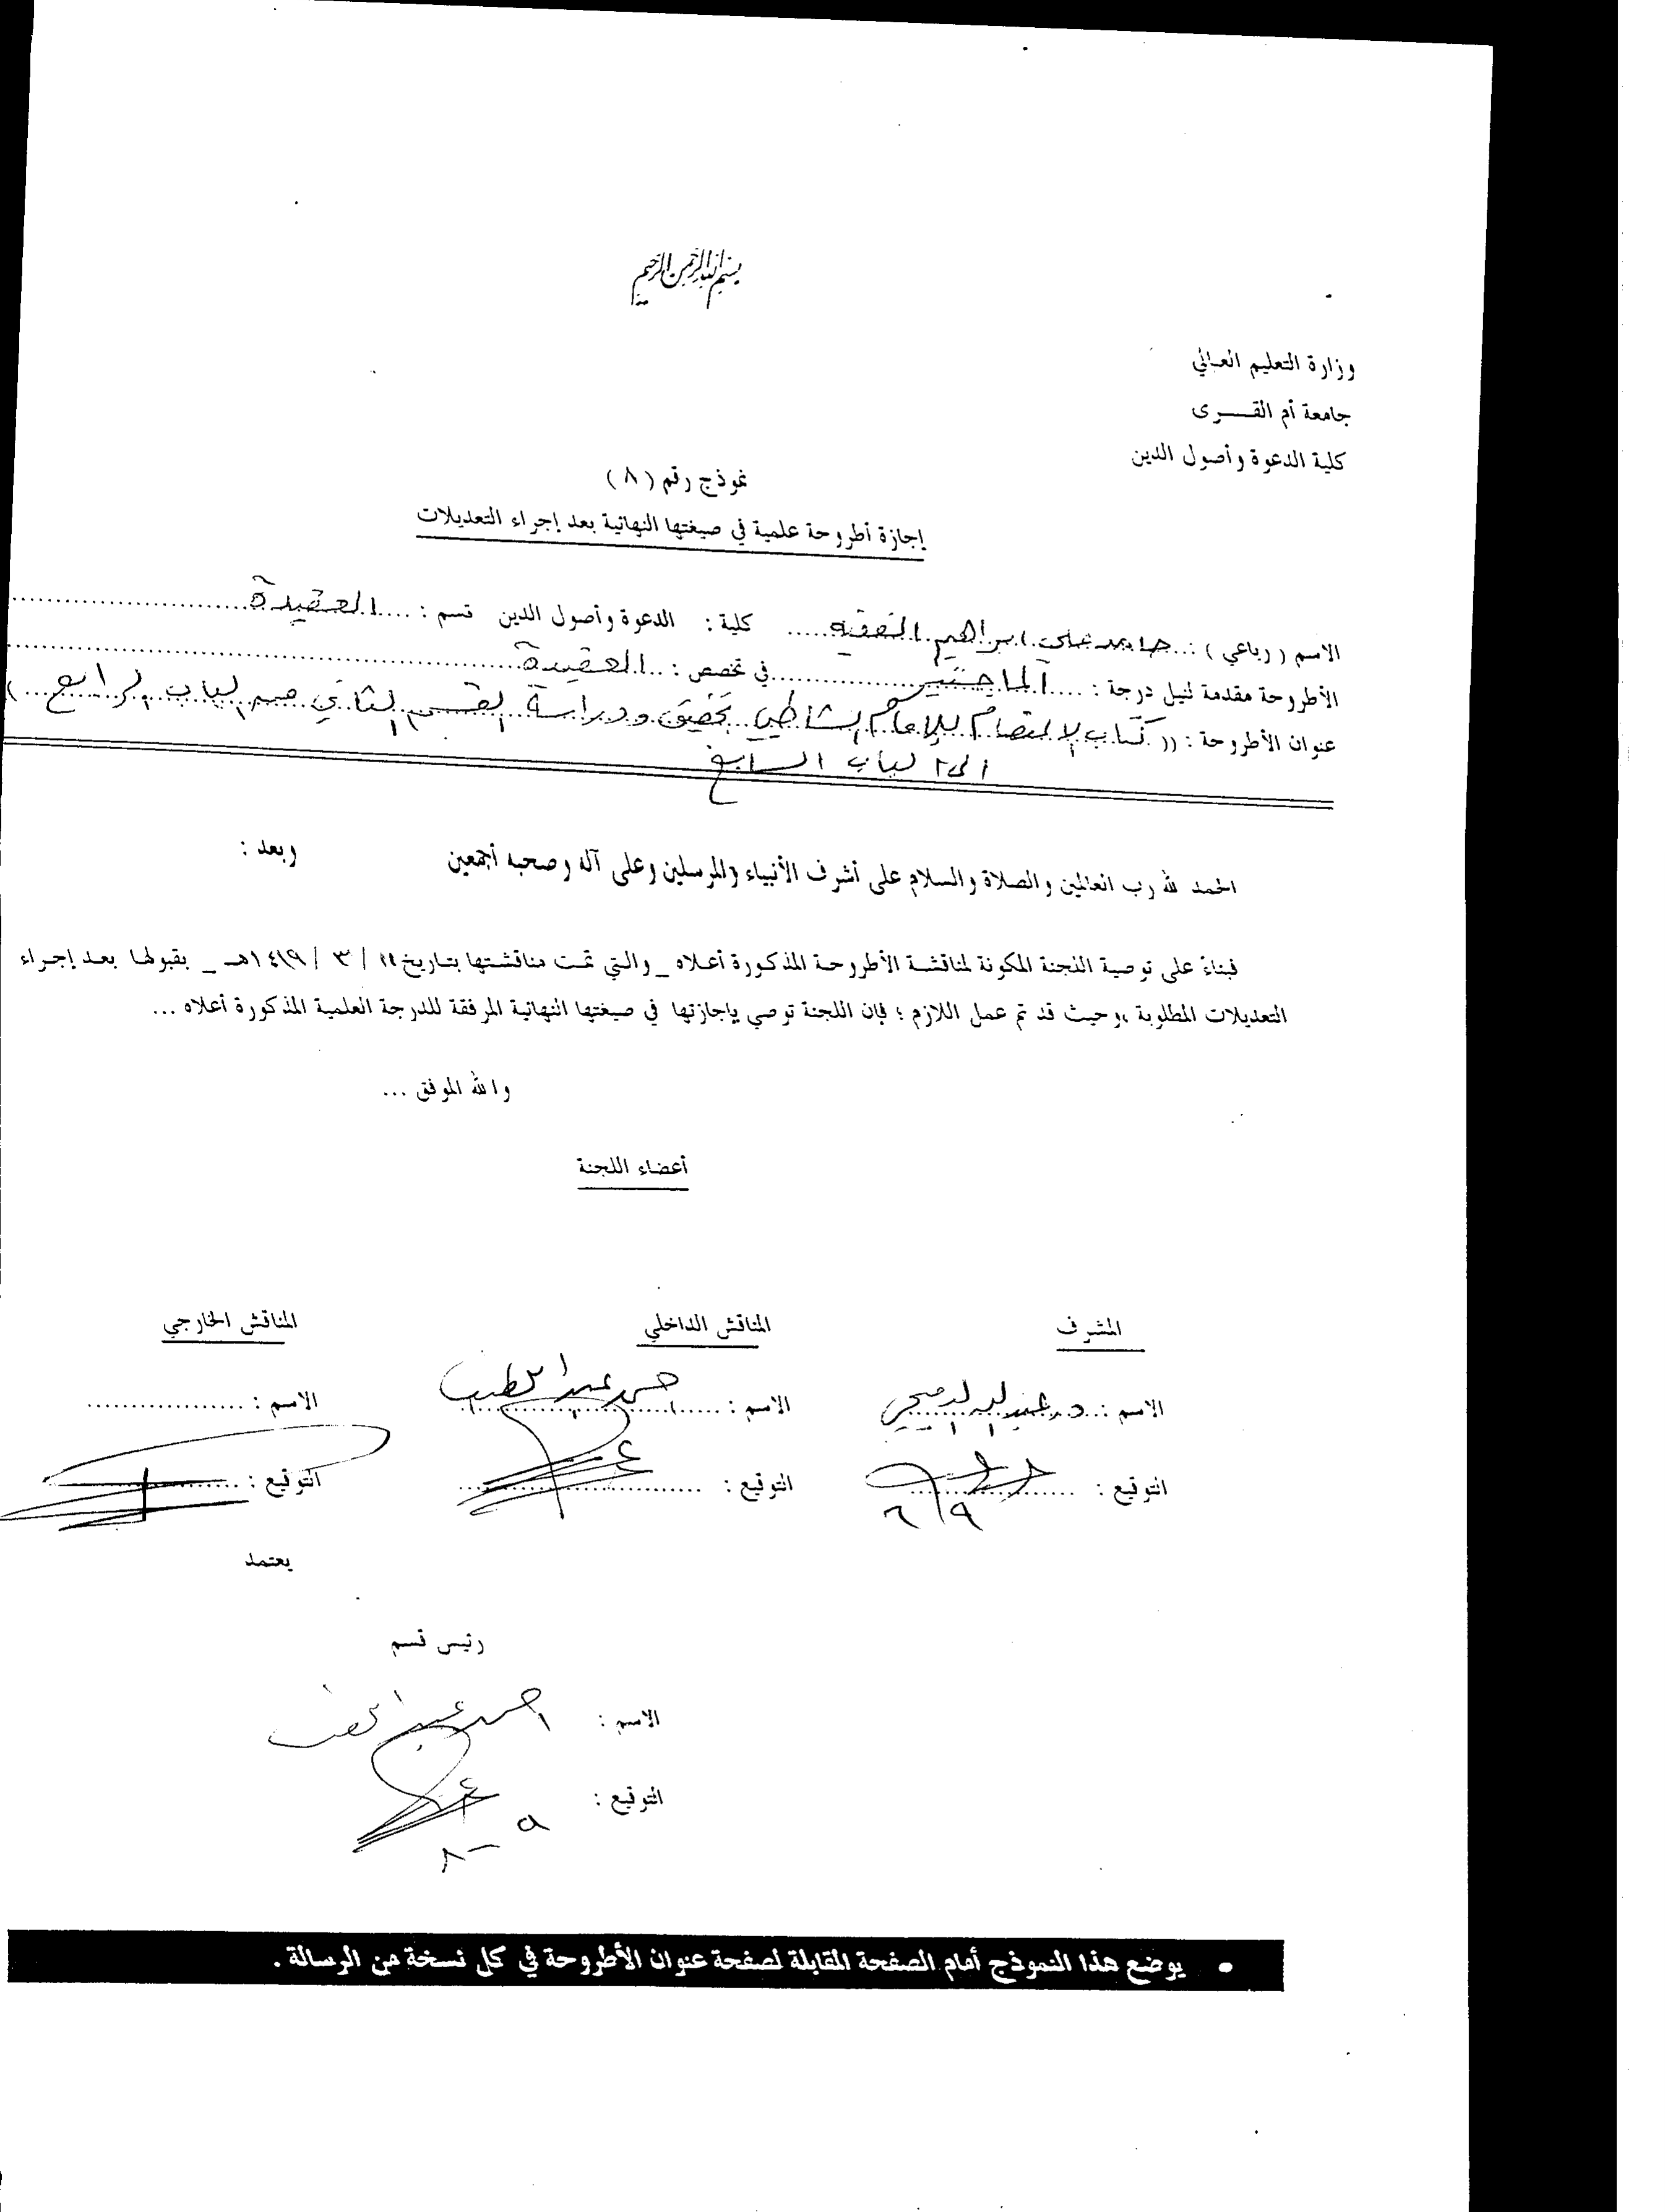 بسم الله الرحمن الرحيم
وزارة التعليم العالي
جامعة أم القــــرى
كلية الدعوة وأصول الدين
نموذج رقم ( ٨ )
إجازة أطروحة علمية في صيغتها النهائية بعد إجراء التعديلات
الاسم ( رباعي ) : حامد علي إبراهيم الفقيه كلية : الدعوة وأصول الدين قسم : العقيدة
الأطروحة مقدمة لنيل درجة : الماجستير في تخصص : العقيدة
عنوان الأطروحة : (( كتاب الاعتصام للإمام الشاطبي تحقيق ودراسة القسم الثاني من الباب الرابع
إلى الباب السابع
الحمد لله رب العالمين والصلاة والسلام على أشرف الأنبياء والمرسلين وعلى آله وصحبه أجمعين وبعد :
فبناءً على توصية اللجنة المكونة لمناقشة الأطروحة المذكورة أعلاه _ والتي تمت مناقشتها بتاريخ / ٣ / ١٤١٩هـ _ بقبولها بعد إجراء
التعديلات المطلوبة ، وحيث قد تم عمل اللازم ؛ فإن اللجنة توصي بإجازتها في صيغتها النهائية المرفقة للدرجة العلمية المذكورة أعلاه ...
والله الموفق ...
أعضاء اللجنة
المشرف المناقش الداخلي المناقش الخارجي
الاسم : د. عبد الله الدميجي الاسم : أحمد عبد اللطيف الاسم : ..................
التوقيع : التوقيع : التوقيع :
يعتمد
رئيس قسم
الاسم : أحمد عبد اللطيف
التوقيع :
• يوضع هذا النموذج أمام الصفحة المقابلة لصفحة عنوان الأطروحة في كل نسخة من الرسالة .